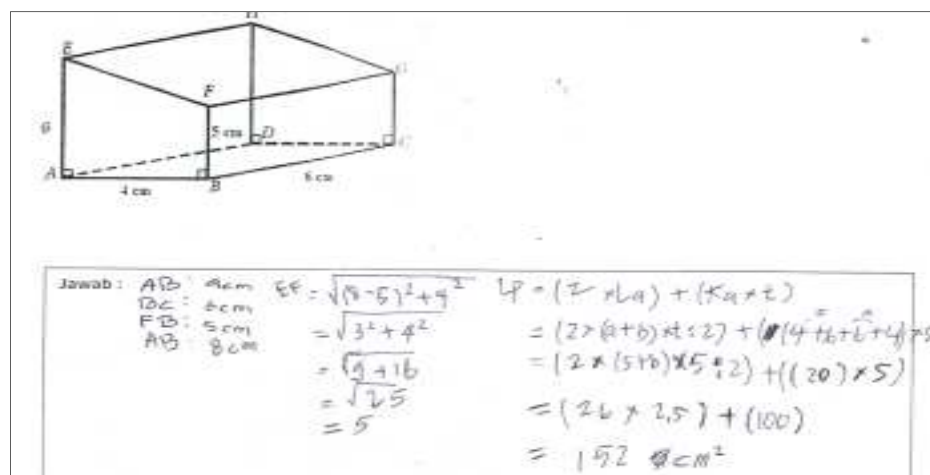 H
E
F
G
5 cm
D
8
C
A
B
4 cm
6 cm
Jawab : AB : 4cm
BC : 6cm
FB : 5cm
AB : 8cm
EF = √(8-5)² + 4²
= √3² + 4²
= √9 + 16
= √25
= 5
LP = (2 × La) + (Ka × t)
= (2 × (a+b) × t : 2) + ((4 + 6 + 6 + 4) × 5
= (2 × (5+8) × 5 : 2) + ((20) × 5)
= (26 × 2,5) + (100)
= 152 cm²